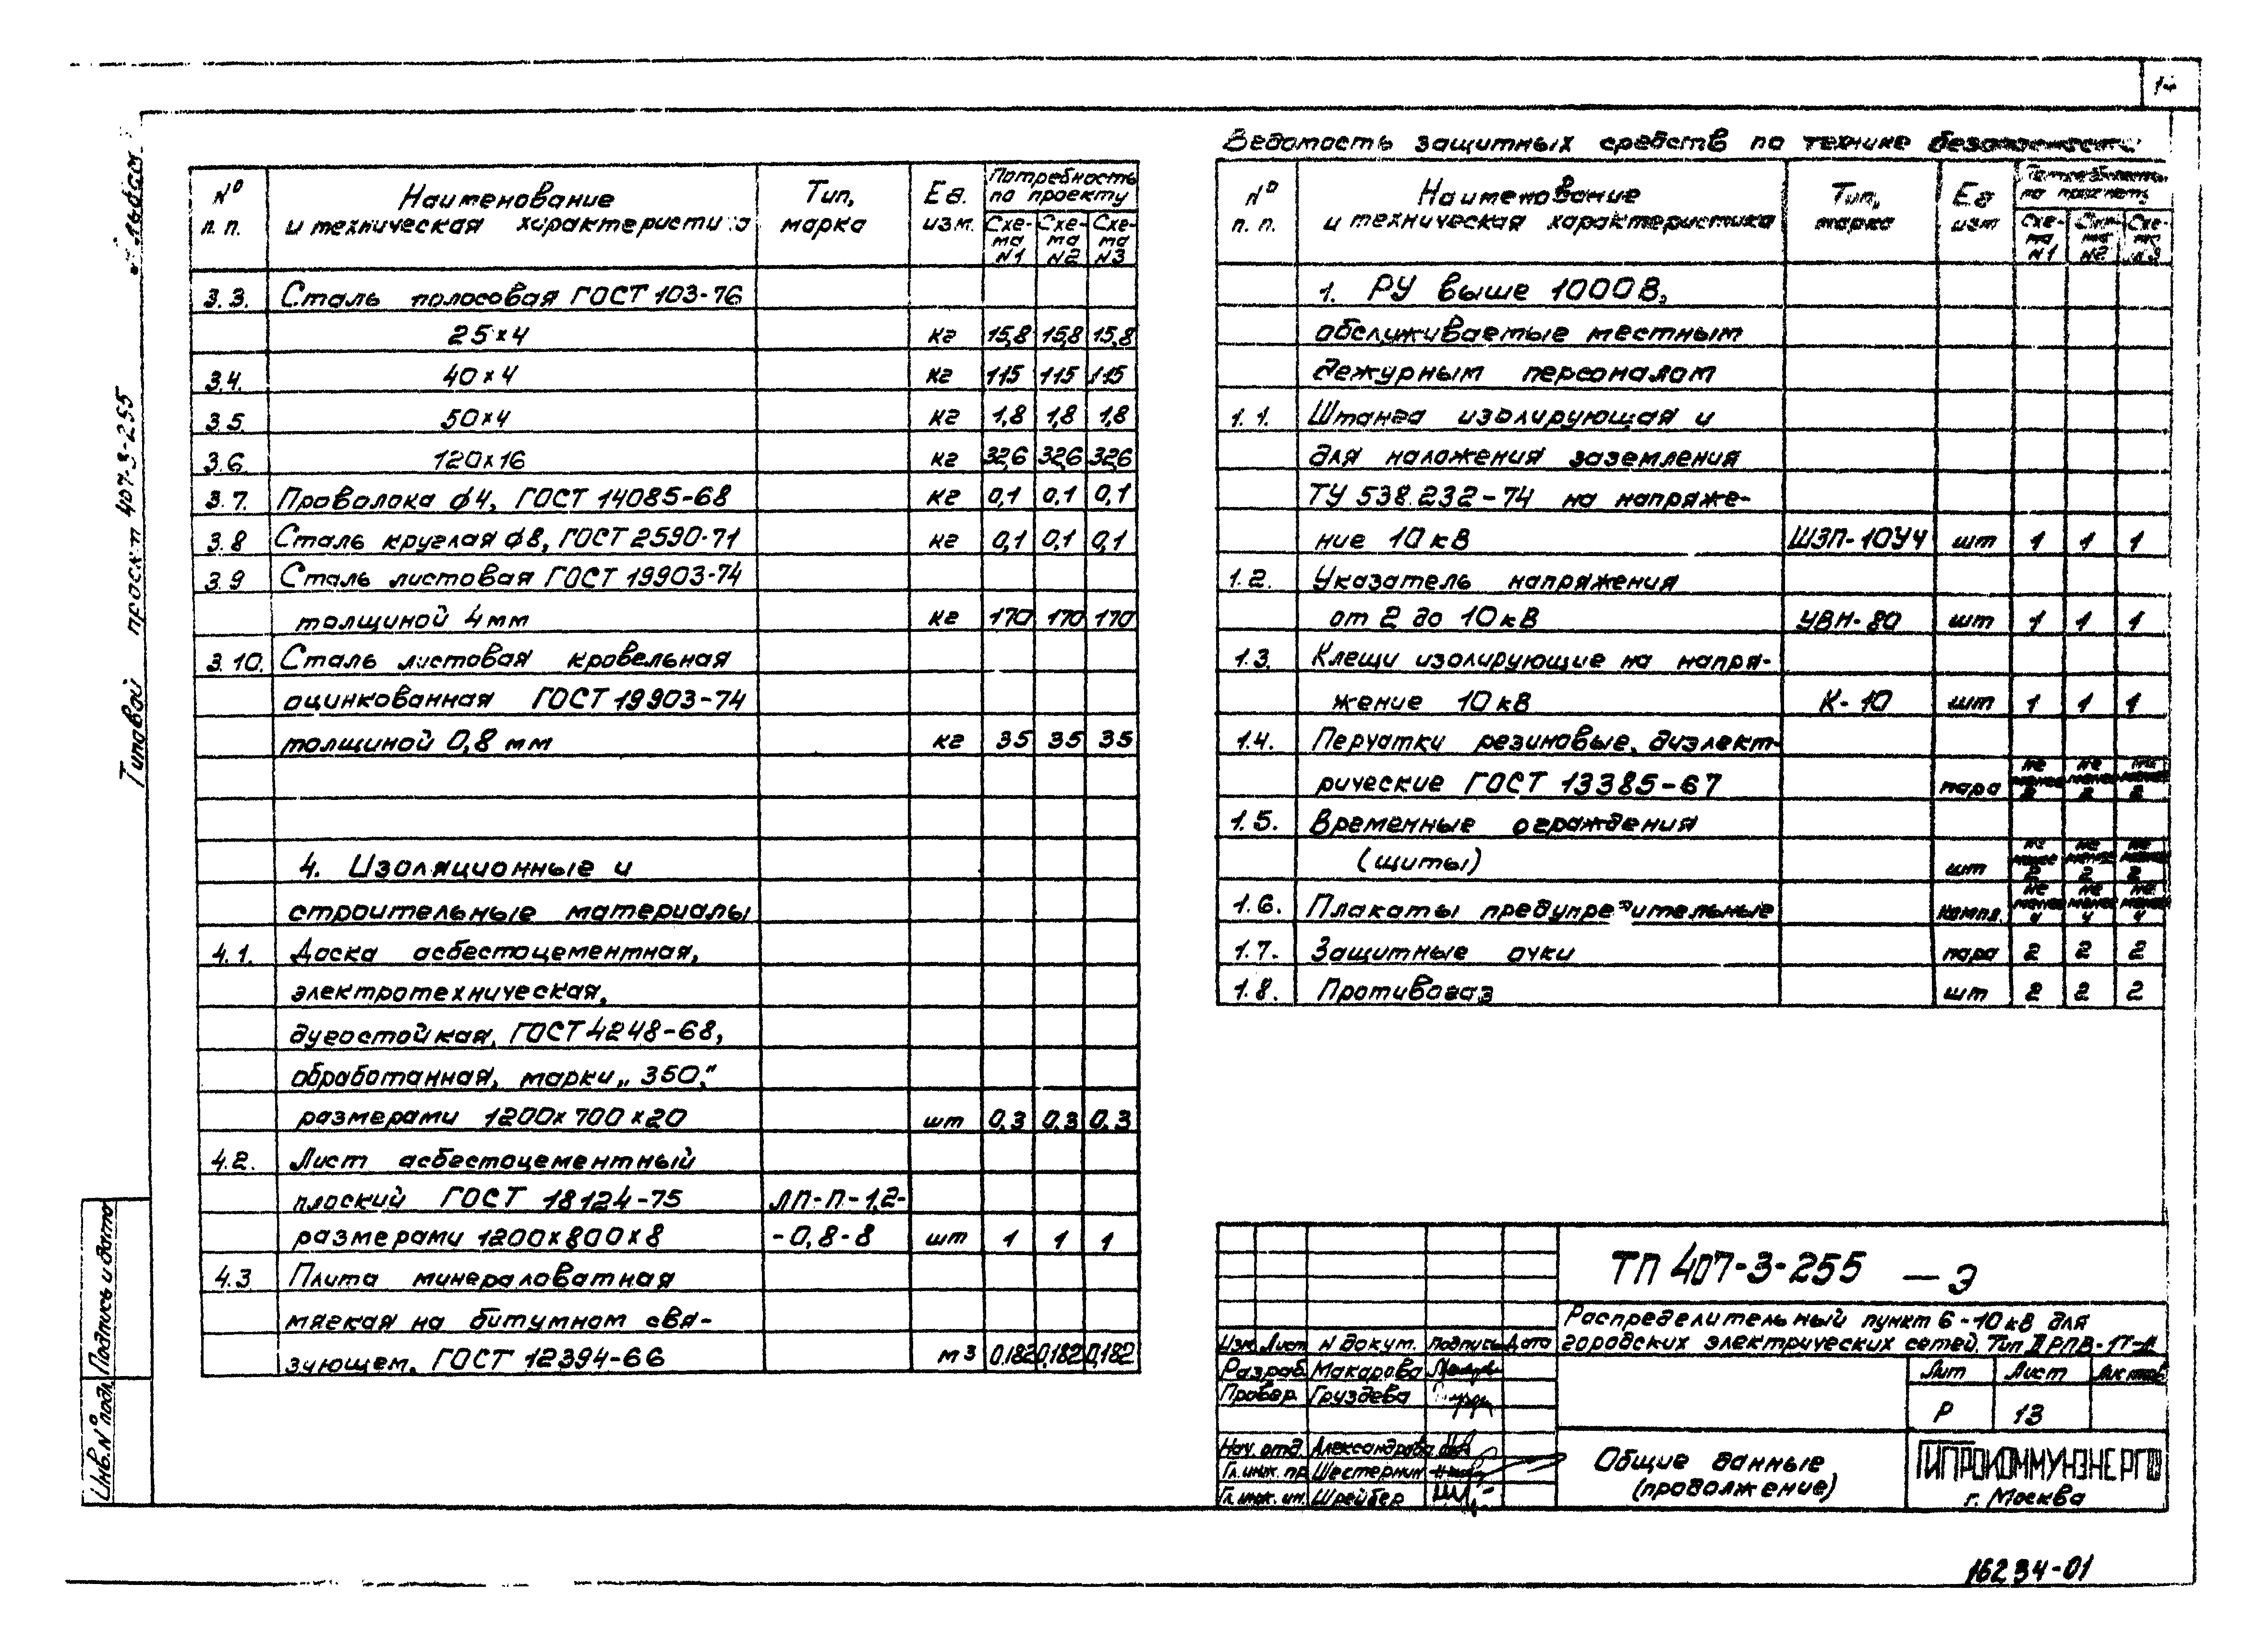 14
Типовой проект 407-3-255 Альбом
№ п.п. Наименование и техническая характеристика Тип, марка Ед. изм. Потребность по проекту Схе-ма №1 Схе-ма №2 Схе-ма №3
3.3. Сталь полосовая ГОСТ 103-76
25×4 кг 15,8 15,8 15,8
3.4. 40×4 кг 115 115 115
3.5 50×4 кг 1,8 1,8 1,8
3.6 120×16 кг 32,6 32,6 32,6
3.7. Проволока ф4, ГОСТ 14085-68 кг 0,1 0,1 0,1
3.8 Сталь круглая ф8, ГОСТ 2590-71 кг 0,1 0,1 0,1
3.9 Сталь листовая ГОСТ 19903-74
толщиной 4мм кг 170 170 170
3.10. Сталь листовая кровельная
оцинкованная ГОСТ 19903-74
толщиной 0,8 мм кг 35 35 35
4. Изоляционные и
строительные материалы
4.1. Доска асбестоцементная,
электротехническая,
дугостойкая, ГОСТ 4248-68,
обработанная, марки „350,"
размерами 1200×700×20 шт 0,3 0,3 0,3
4.2. Лист асбестоцементный
плоский ГОСТ 18124-75 ЛП-П-1,2-
размерами 1200×800×8 -0,8-8 шт 1 1 1
4.3 Плита минераловатная
мягкая на битумном свя-
зующем, ГОСТ 12394-66 м3 0,182 0,182 0,182
Ведомость защитных средств по технике безопасности
№ п.п. Наименование и техническая характеристика Тип, марка Ед изм Потребность по проекту Схе-ма №1 Схе-ма №2 Схе-ма №3
1. РУ выше 1000В,
обслуживаемые местным
дежурным персоналом
1.1. Штанга изолирующая и
для наложения заземления
ТУ 538.232-74 на напряже-
ние 10кВ ШЗП-10У4 шт 1 1 1
1.2. Указатель напряжения
от 2 до 10кВ УВН-80 шт 1 1 1
1.3. Клещи изолирующие на напря-
жение 10кВ К-10 шт 1 1 1
1.4. Перчатки резиновые, диэлект-
рические ГОСТ 13385-67 пара не менее 2 не менее 2 не менее 2
1.5. Временные ограждения
(щиты) шт не менее 2 не менее 2 не менее 2
1.6. Плакаты предупредительные компл. не менее 4 не менее 4 не менее 4
1.7. Защитные очки пара 2 2 2
1.8. Противогаз шт 2 2 2
ТП 407-3-255 — Э
Распределительный пункт 6-10кВ для
городских электрических сетей. Тип
Изм Лист N докум. Подпись Дата
Разраб. Макарова
Провер. Груздева
Нач. отд. Александрова
Гл. инж. пр. Шестернин
Гл. инж. ин. Шрейбер
Лит Лист Листов
Р 13
Общие данные
(продолжение)
ГИПРОКОММУНЭНЕРГО
г. Москва
Подпись и дата
Инв. № подл.
16234-01